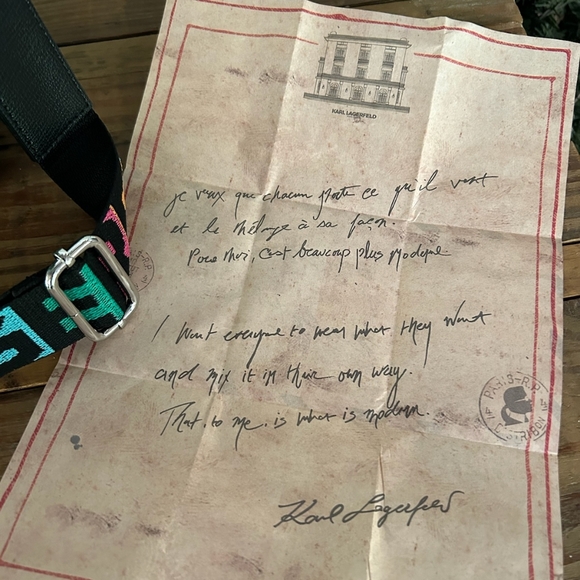 KARL LAGERFELD
je veux que chacun porte ce qu'il veut
et le mélange à sa façon.
Pour moi, c'est beaucoup plus moderne
I want everyone to wear what they want
and mix it in their own way.
That, to me, is what is modern.
PARIS-R.P.
Karl Lagerfeld